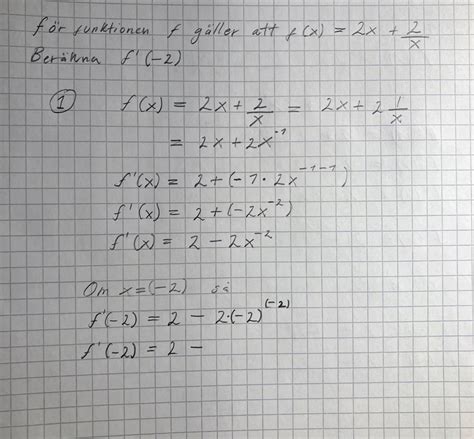 för funktionen f gäller att f(x) = 2x + 2/x
Beräkna f'(-2)
① f(x) = 2x + 2/x = 2x + 2 1/x
= 2x + 2x⁻¹
f'(x) = 2 + (-1 · 2x⁻¹⁻¹)
f'(x) = 2 + (-2x⁻²)
f'(x) = 2 - 2x⁻²
Om x = (-2) så
f'(-2) = 2 - 2·(-2)⁽⁻²⁾
f'(-2) = 2 -